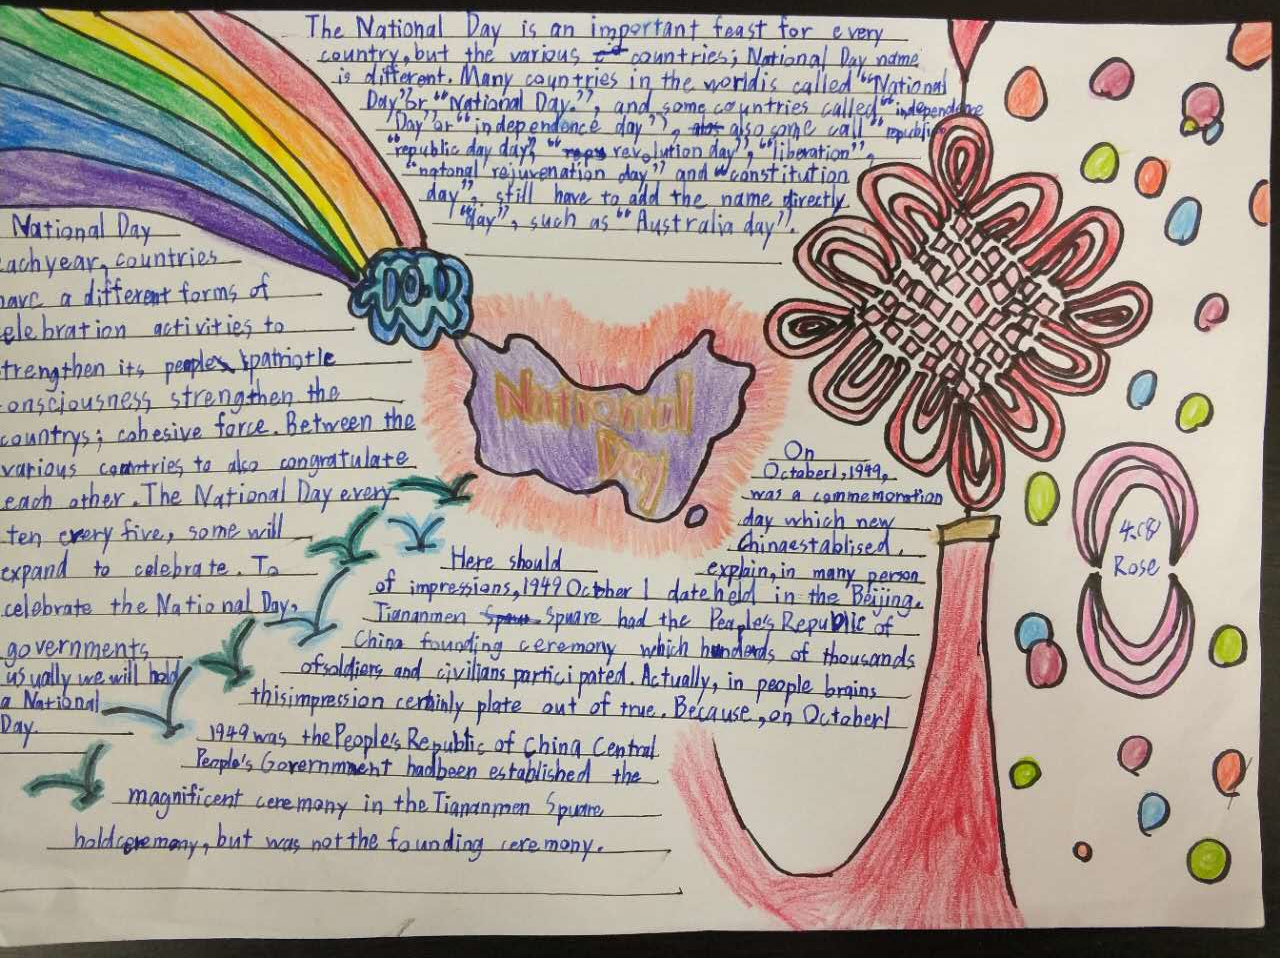 The National Day is an important feast for every
country, but the various countries; National Day name
is different. Many countries in the worldis called "National
Day" or "National Day.", and some countries called "independence
Day" or "independence day", also some call "republic
"republic day day", " revolution day", "liberation",
"natonal rejuvenation day" and "constitution
day", still have to add the name directly.
"day", such as "Australia day".
National Day
achyear, countries
have a different forms of
elebration activities to
trengthen its peoples patriotle
onsciousness strengthen the
countrys; cohesive force. Between the
various countries to also congratulate
each other. The National Day every
ten every five, some will
expand to celebrate. To
celebrate the National Day,
governments
usually we will hold
a National
Day.
National
Day
On
October1, 1949,
was a commemoration
day which new
Chinaestablised.
Here should explain, in many person
of impressions, 1949 October 1 dateheld in the Beijing.
Tiananmen Square had the People's Republic of
China founding ceremony which hundreds of thousands
ofsoldiers and civilians participated. Actually, in people brains
thisimpression certainly plate out of true. Because, on October1
1949 was the People's Republic of China Central
People's Government hadbeen established the
magnificent ceremony in the Tiananmen Square
holdceremony, but was not the founding ceremony.
4.(8)
Rose